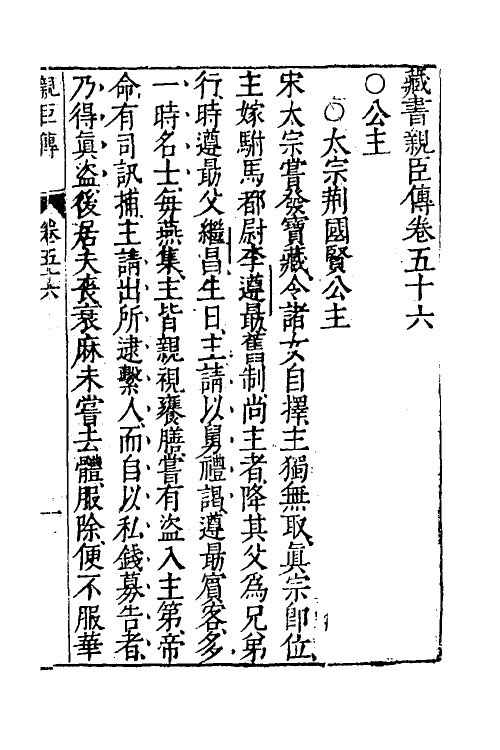 藏書親臣傳卷五十六
○公主
○太宗荆國賢公主
宋太宗嘗發寶藏令諸女自擇主獨無取眞宗卽位
主嫁駙馬都尉李遵最舊制尚主者降其父爲兄弟
行時遵最父繼昌生日主請以舅禮謁遵最賓客多
一時名士每燕集主皆親視饔膳嘗有盜入主第帝
命有司訊捕主請出所逮繫人而自以私錢募告者
乃得眞盜後居夫喪衰麻未嘗去體服除便不服華
親臣傳 卷五十六 一